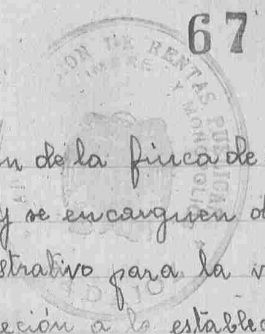 67
ION DE RENTAS PUBLICAS
TIMBRE Y MONOPOLIOS
n de la finca de
y se encarguen d
strativo para la v
eción a lo establec